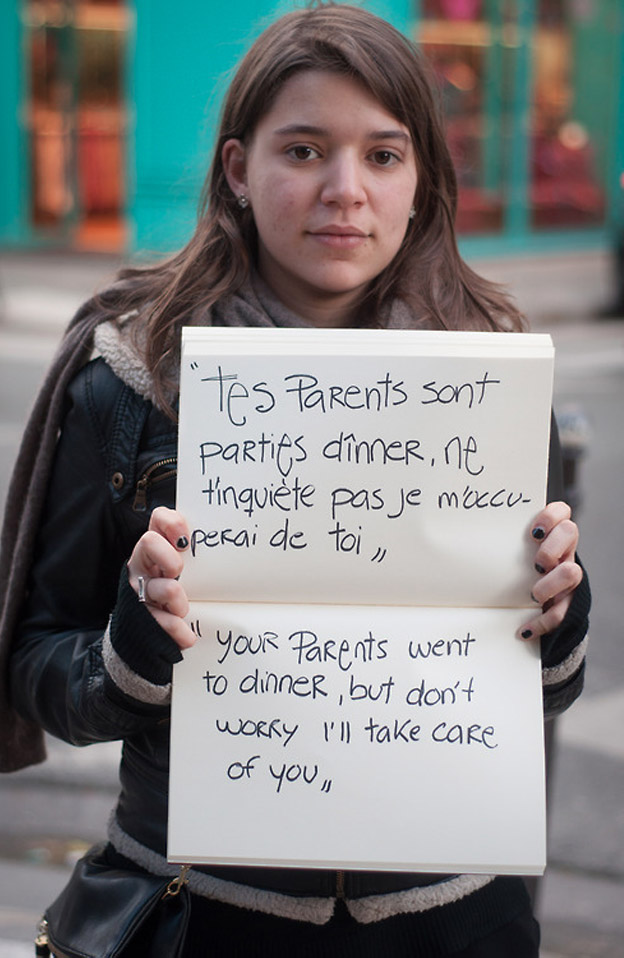 "Tes Parents sont
parties dînner, ne
t'inquiète pas je m'occu-
perai de toi„
"Your Parents went
to dinner, but don't
worry I'll take care
of you„